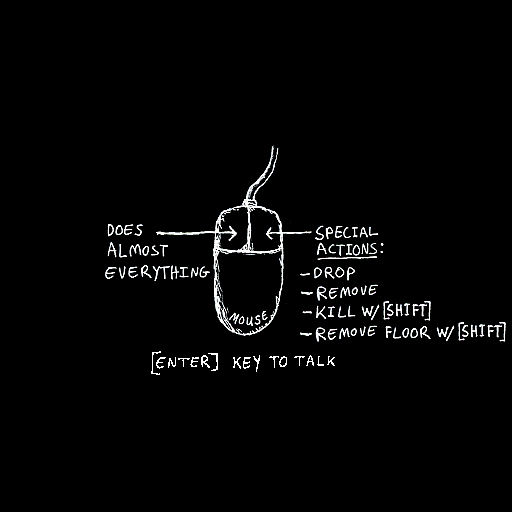 DOES
ALMOST
EVERYTHING
SPECIAL
ACTIONS:
-DROP
-REMOVE
-KILL W/[SHIFT]
-REMOVE FLOOR W/[SHIFT]
MOUSE
[ENTER] KEY TO TALK